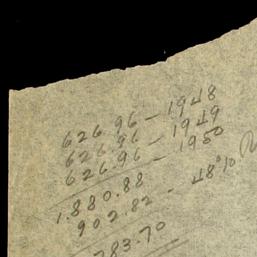 626.96 - 1948
626.96 - 1949
626.96 - 1950
1.880.88
902.82 - 48%
783.70